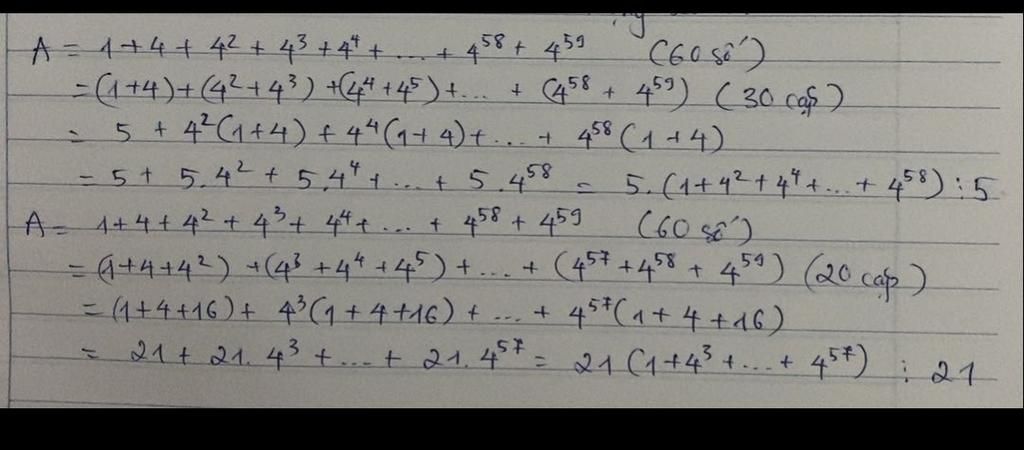 A = 1+4+4²+4³+4⁴+...+4⁵⁸+4⁵⁹ (60 số)
=(1+4)+(4²+4³)+(4⁴+4⁵)+...+(4⁵⁸+4⁵⁹) (30 cặp)
= 5+4²(1+4)+4⁴(1+4)+...+4⁵⁸(1+4)
= 5+5.4²+5.4⁴+...+5.4⁵⁸ = 5.(1+4²+4⁴+...+4⁵⁸):5
A= 1+4+4²+4³+4⁴+...+4⁵⁸+4⁵⁹ (60 số)
=(1+4+4²)+(4³+4⁴+4⁵)+...+(4⁵⁷+4⁵⁸+4⁵⁹) (20 cặp)
=(1+4+16)+4³(1+4+16)+...+4⁵⁷(1+4+16)
= 21+21.4³+...+21.4⁵⁷= 21(1+4³+...+4⁵⁷) ⋮ 21